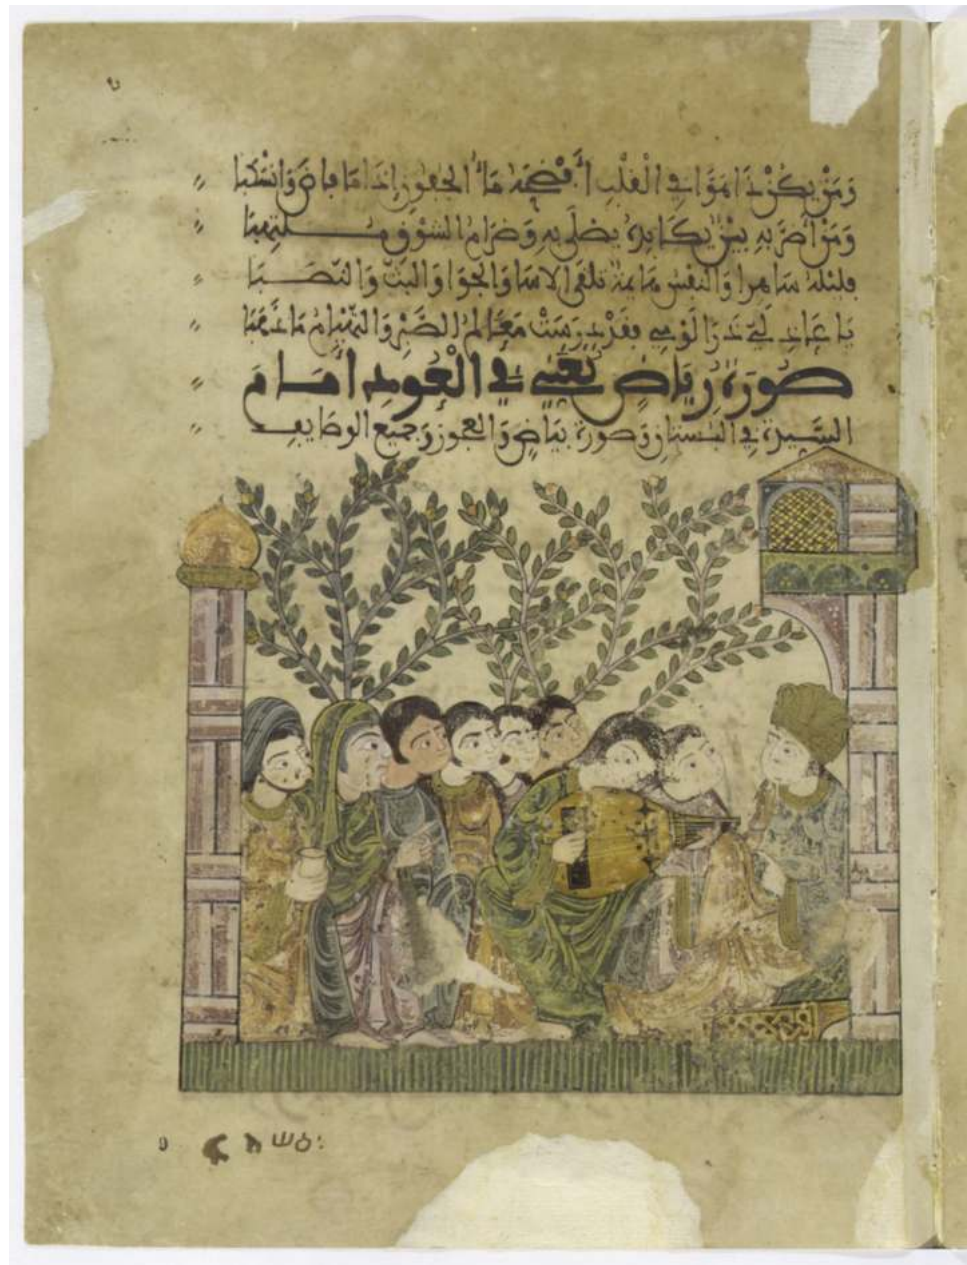 ومن يكن ذا هوا في القلب أفضحه ماء الجفون إذا ما فاض وانسكبا
ومن أضر به بين يكابده يصلى به وضرام الشوق ملتهبا
فليله ساهرا والنفس هايمة تلقى الاسا والجوا والبث والنصبا
يا عاذلي ذرا لومي فقد درست معالم الصبر والتهيام ما ذهبا
صورة رياض تغني في العود أمام
السيدة في البستان وصورة بياض والعجوز وجميع الوصايف